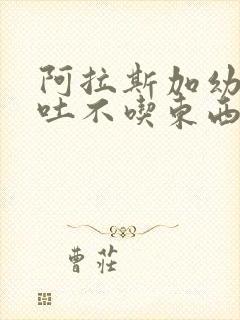 阿拉斯加幼
吐不喫东西
曹莊